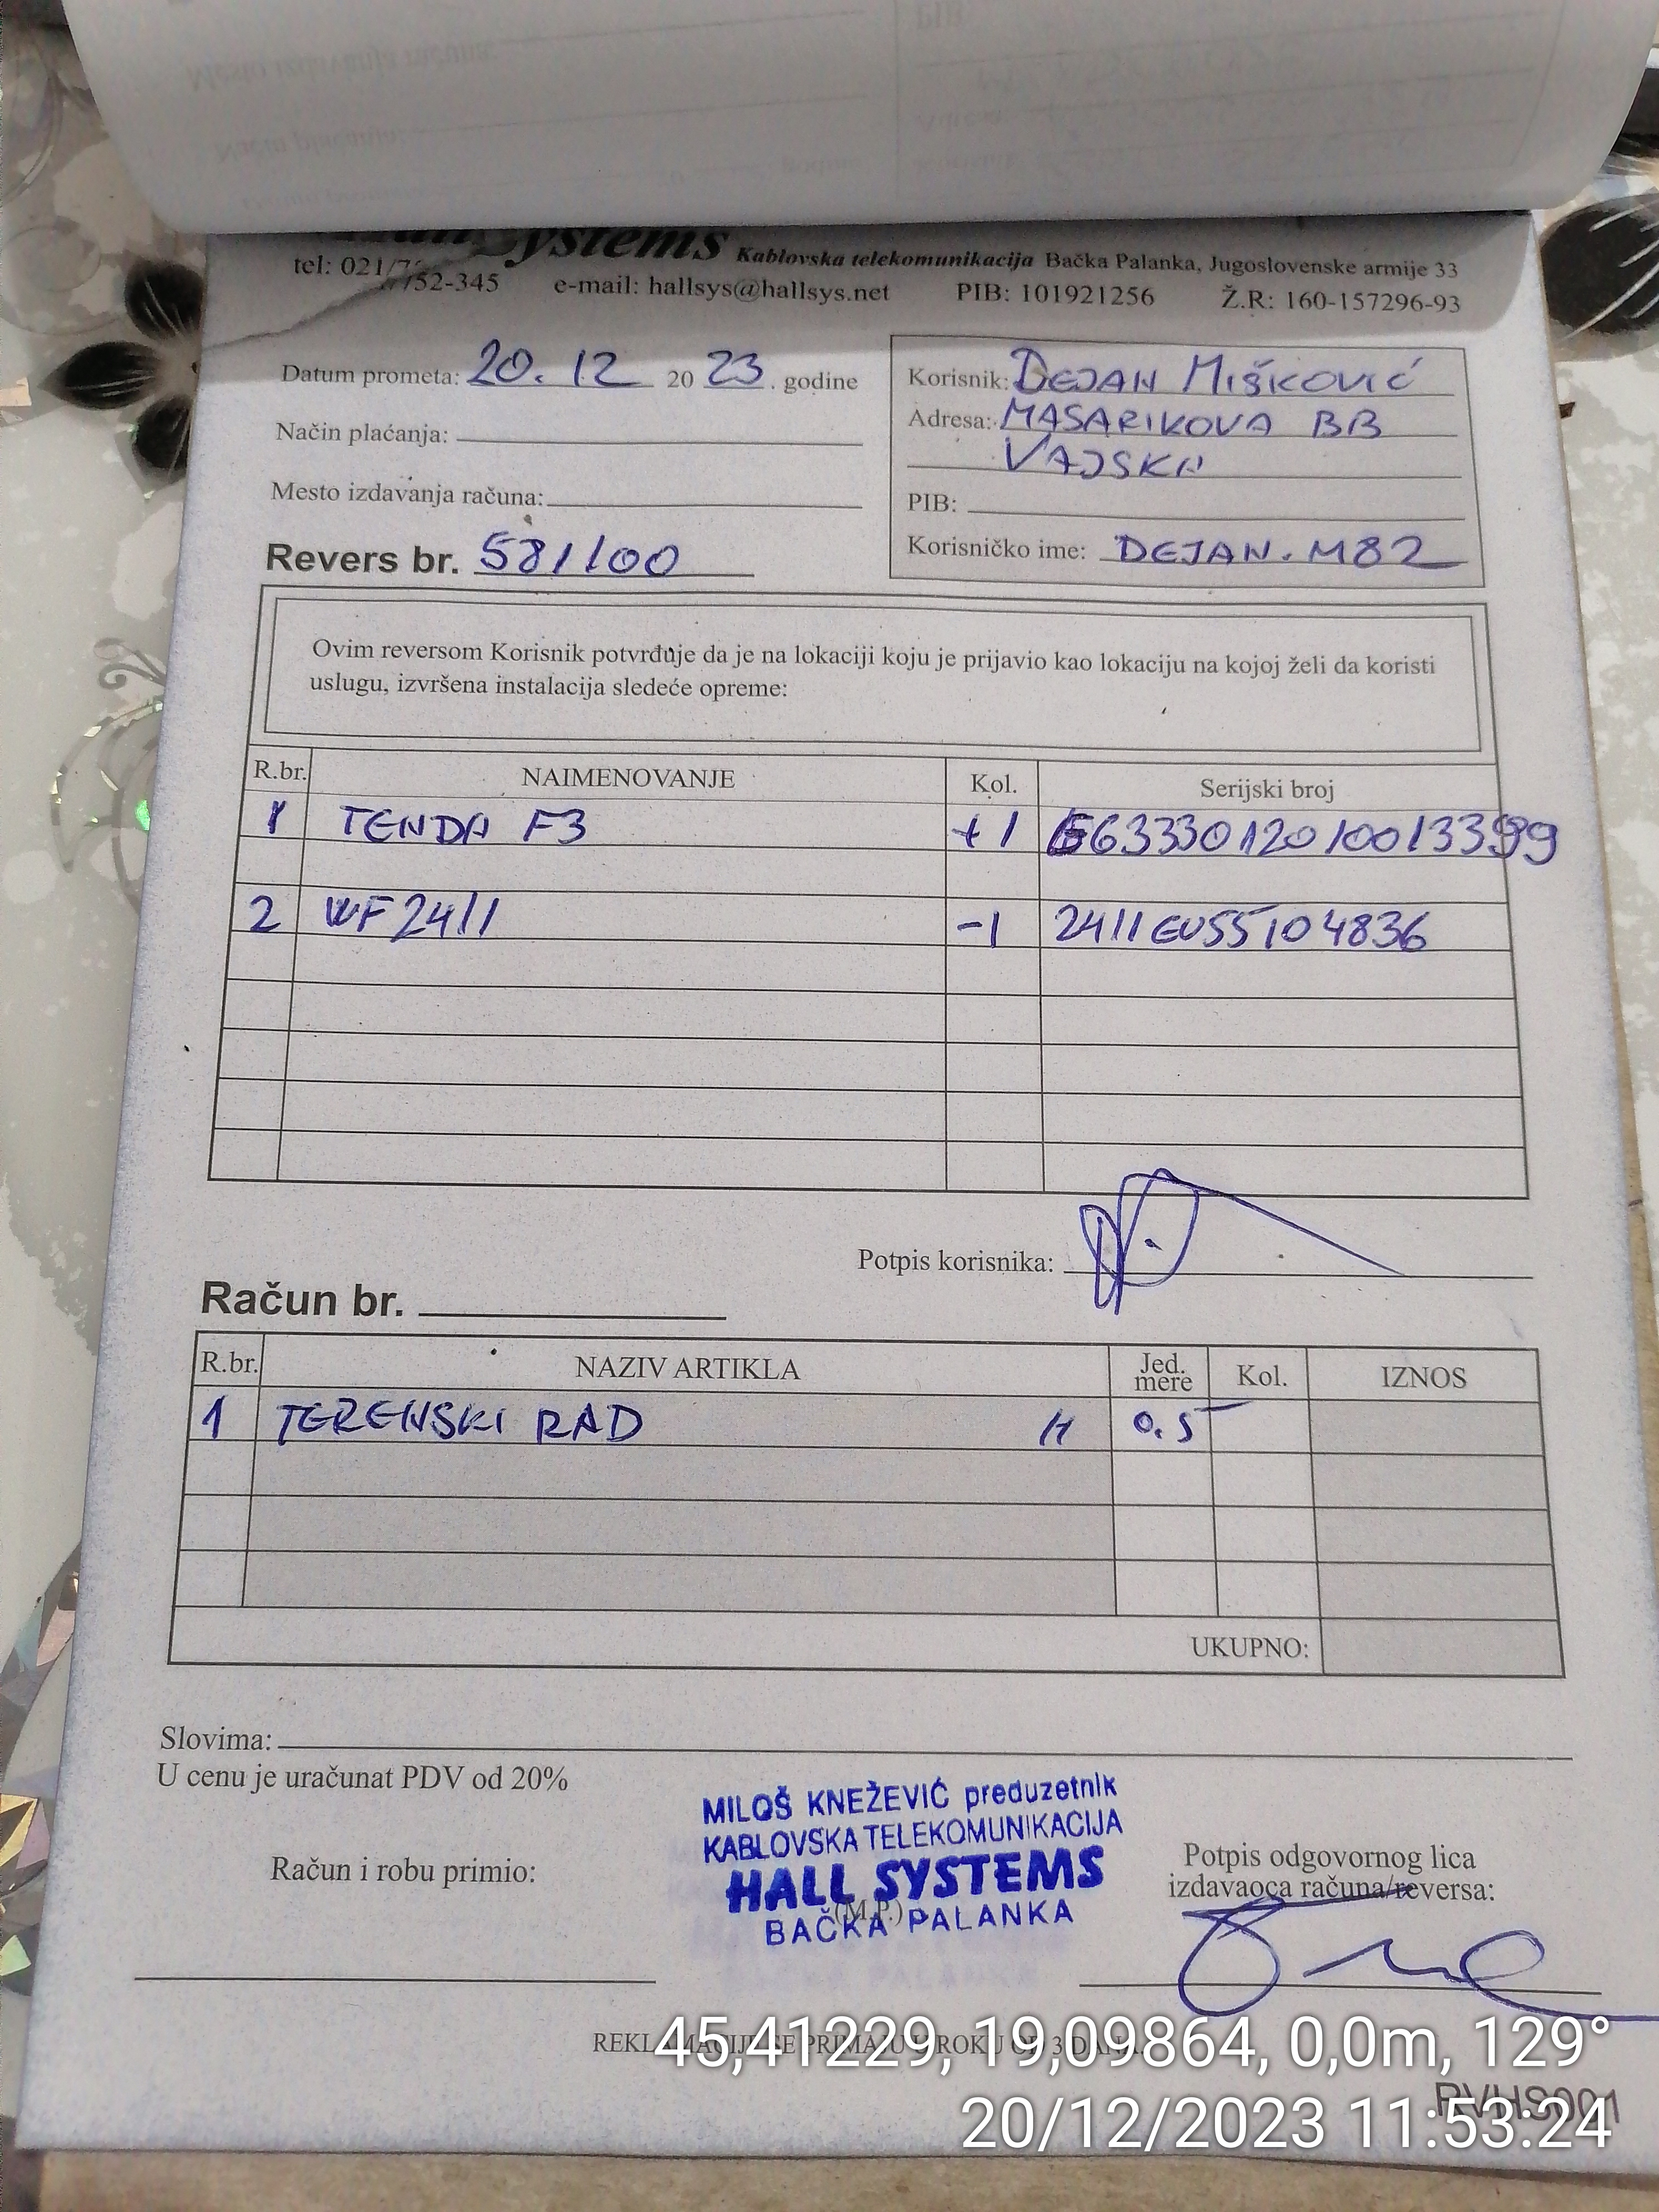 Systems Kablovska telekomunikacija Bačka Palanka, Jugoslovenske armije 33
tel: 021/7 752-345 e-mail: hallsys@hallsys.net PIB: 101921256 Ž.R: 160-157296-93
Datum prometa: 20. 12 20 23. godine
Način plaćanja:
Mesto izdavanja računa:
Revers br. 581/100
Korisnik: DEJAN MIŠKOVIĆ
Adresa: MASARIKOVA BB
VAJSKA
PIB:
Korisničko ime: DEJAN.M82
Ovim reversom Korisnik potvrđuje da je na lokaciji koju je prijavio kao lokaciju na kojoj želi da koristi
uslugu, izvršena instalacija sledeće opreme:
R.br. NAIMENOVANJE Kol. Serijski broj
1 TENDA F3 +1
2 WF2411 -1 2411EU55104836
Potpis korisnika:
Račun br.
R.br. NAZIV ARTIKLA Jed. mere Kol. IZNOS
1 TERENSKI RAD H 0.5
UKUPNO:
Slovima:
U cenu je uračunat PDV od 20%
MILOŠ KNEŽEVIĆ preduzetnik
KABLOVSKA TELEKOMUNIKACIJA
HALL SYSTEMS
(M.P.)
BAČKA PALANKA
Račun i robu primio:
Potpis odgovornog lica
izdavaoca računa/reversa:
REKLAMACIJE SE PRIMAJU U ROKU OD 3 DANA.
45,41229, 19,09864, 0,0m, 129°
RVHS001
20/12/2023 11:53:24